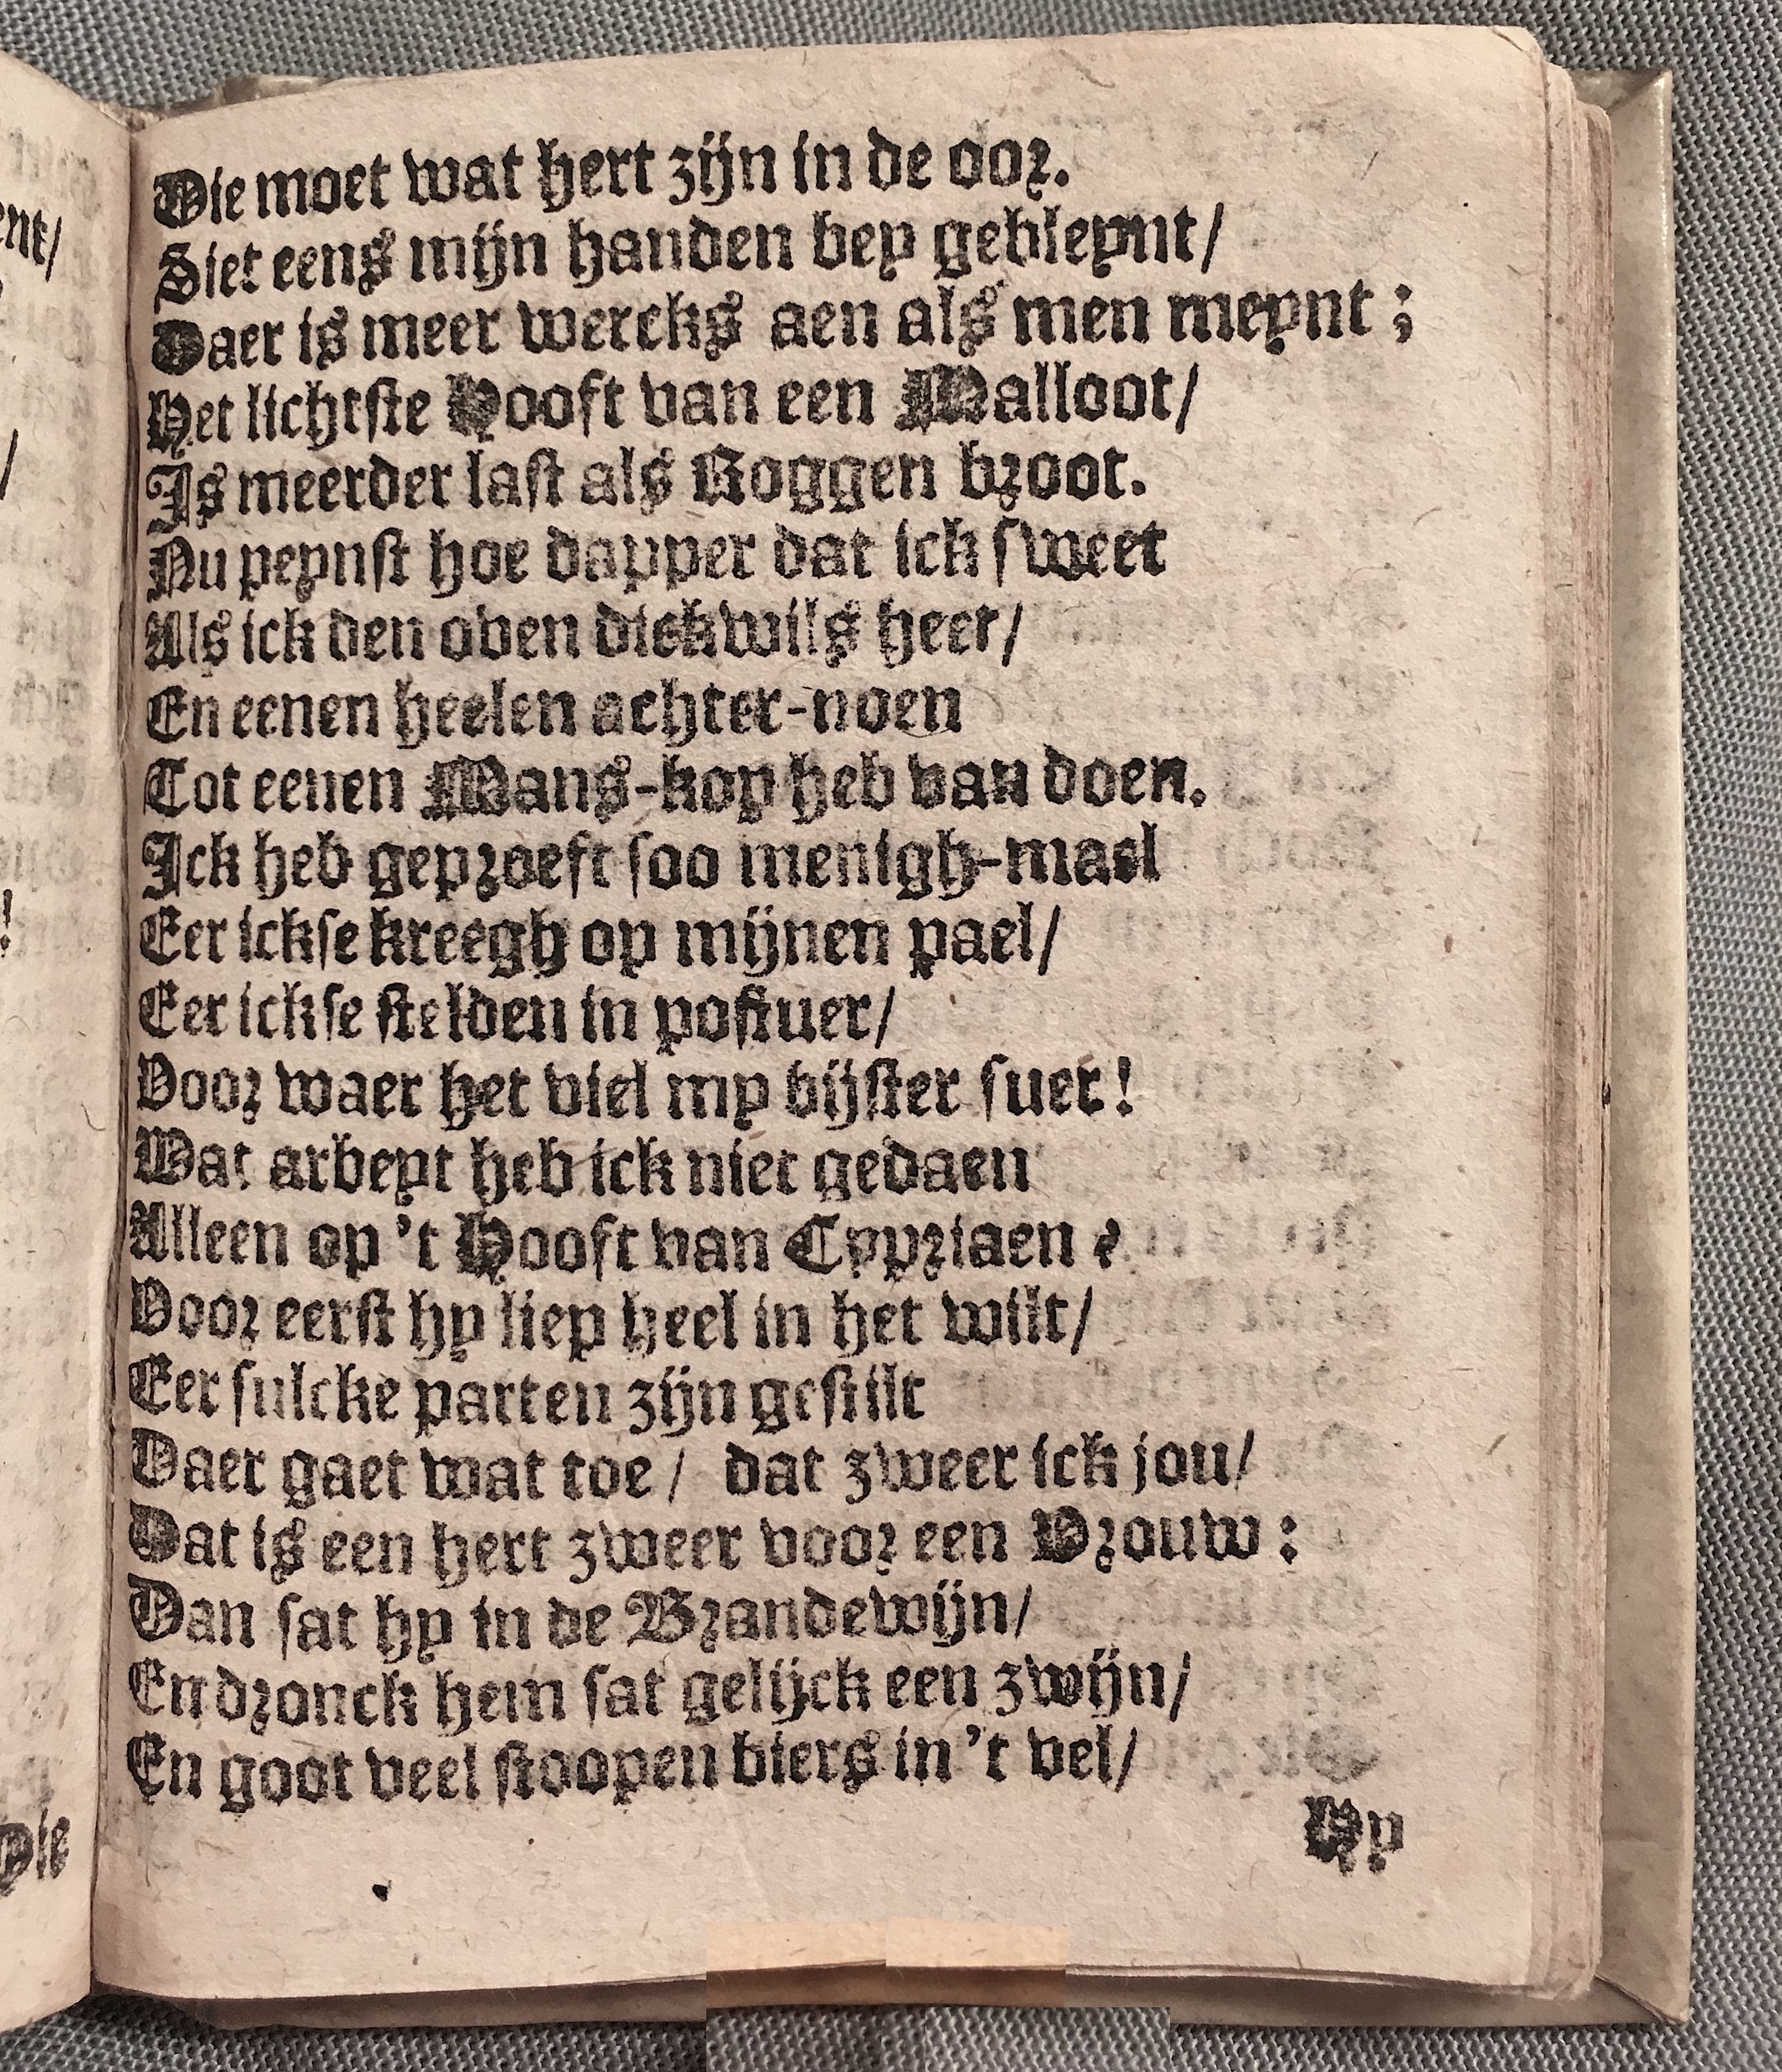 Die moet wat hert zijn in de oor.
Siet eens mijn handen bey gebleynt/
Daer is meer wercks aen als men meynt;
Het lichtste Hooft van een Malloot/
Is meerder last als Roggen broot.
Nu peynst hoe dapper dat ick sweet
Als ick den oven dickwils heet/
En eenen heelen achter-noen
Tot eenen Mans-kop heb van doen.
Ick heb geproeft soo menigh-mael
Eer ickse kreegh op mijnen pael/
Eer ickse stelden in postuer/
Voor waer het viel my bijster suer!
Wat arbeyt heb ick niet gedaen
Alleen op 't Hooft van Cypriaen?
Voor eerst hy liep heel in het wilt/
Eer sulcke parten zijn gestilt
Daer gaet wat toe/ dat zweer ick jou/
Dat is een hert zweer voor een Vrouw:
Dan sat hy in de Brandewijn/
En dronck hem sat gelijck een zwijn/
En goot veel stoopen biers in 't vel/
Hy